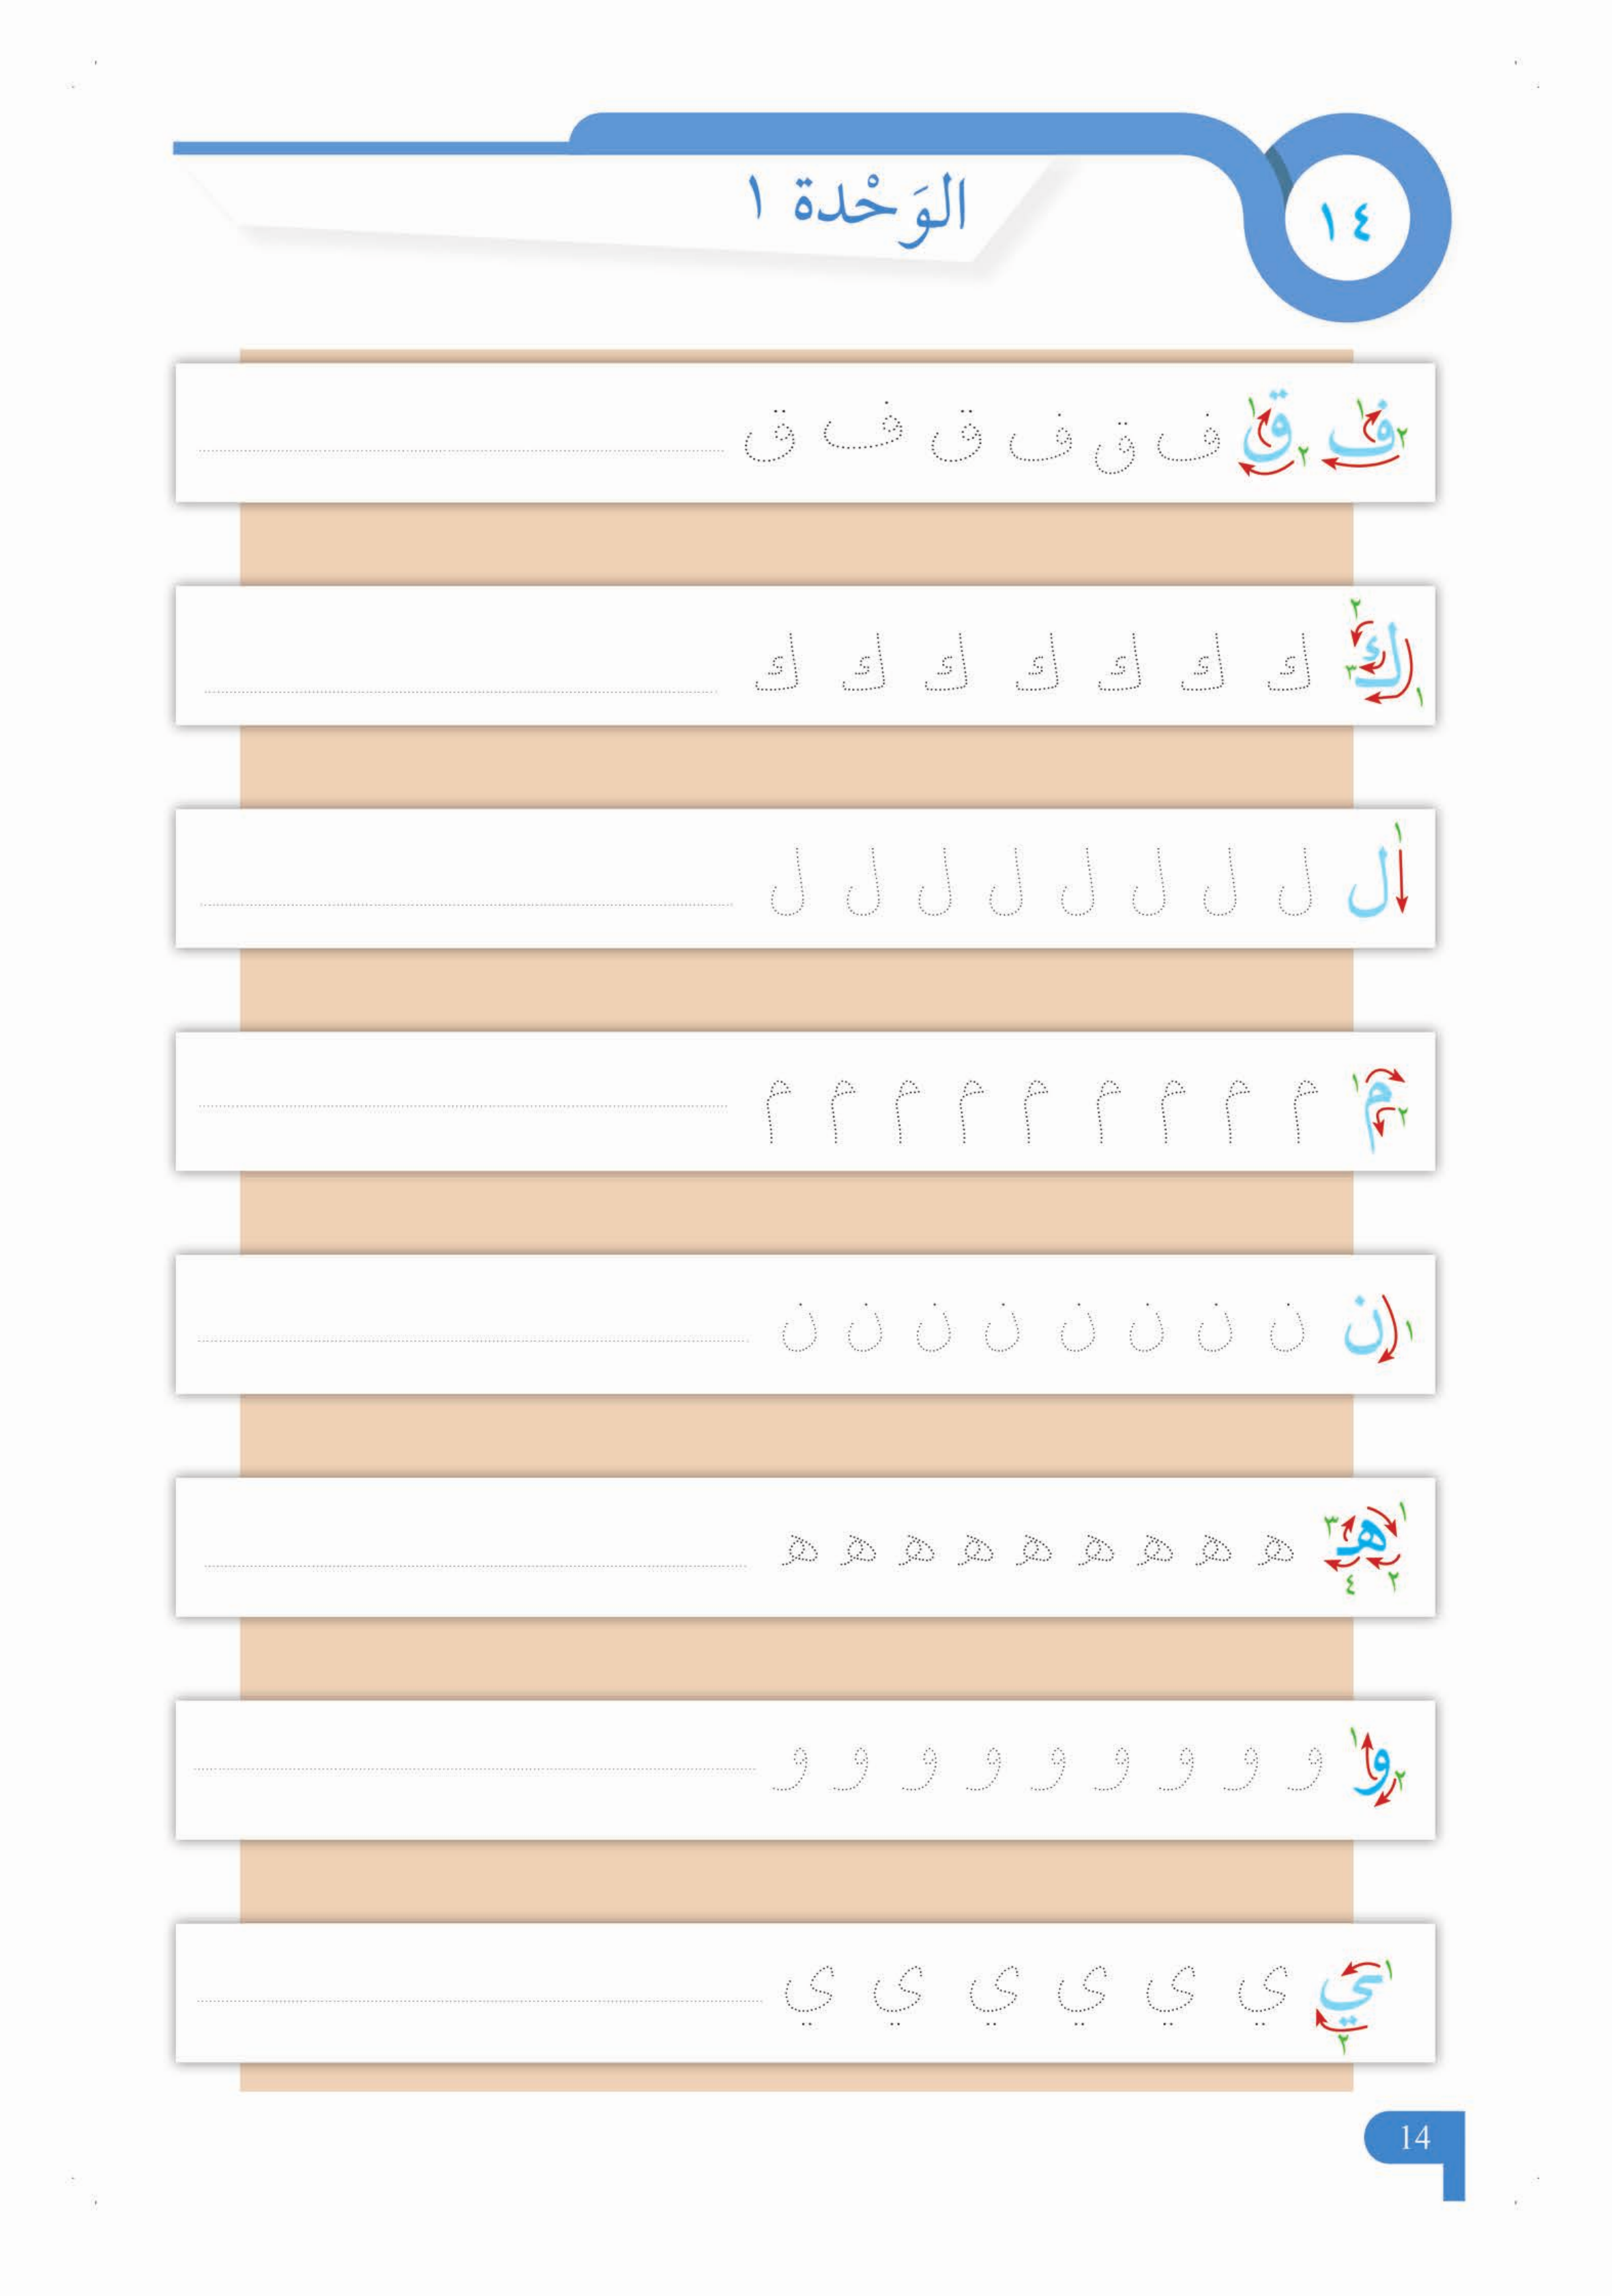 ١٤
الوَحْدة ١
ف ق ف ق ف ق ف ق
١ ٢ ١ ٢
ك ك ك ك ك ك ك ك
١ ٢ ٣
ل ل ل ل ل ل ل ل ل
١
م م م م م م م م م م
١ ٢
ن ن ن ن ن ن ن ن ن
١
هـ هـ هـ هـ هـ هـ هـ هـ هـ هـ
١ ٢ ٣ ٤
و و و و و و و و و و
١ ٢
ي ي ي ي ي ي ي
١ ٢
14